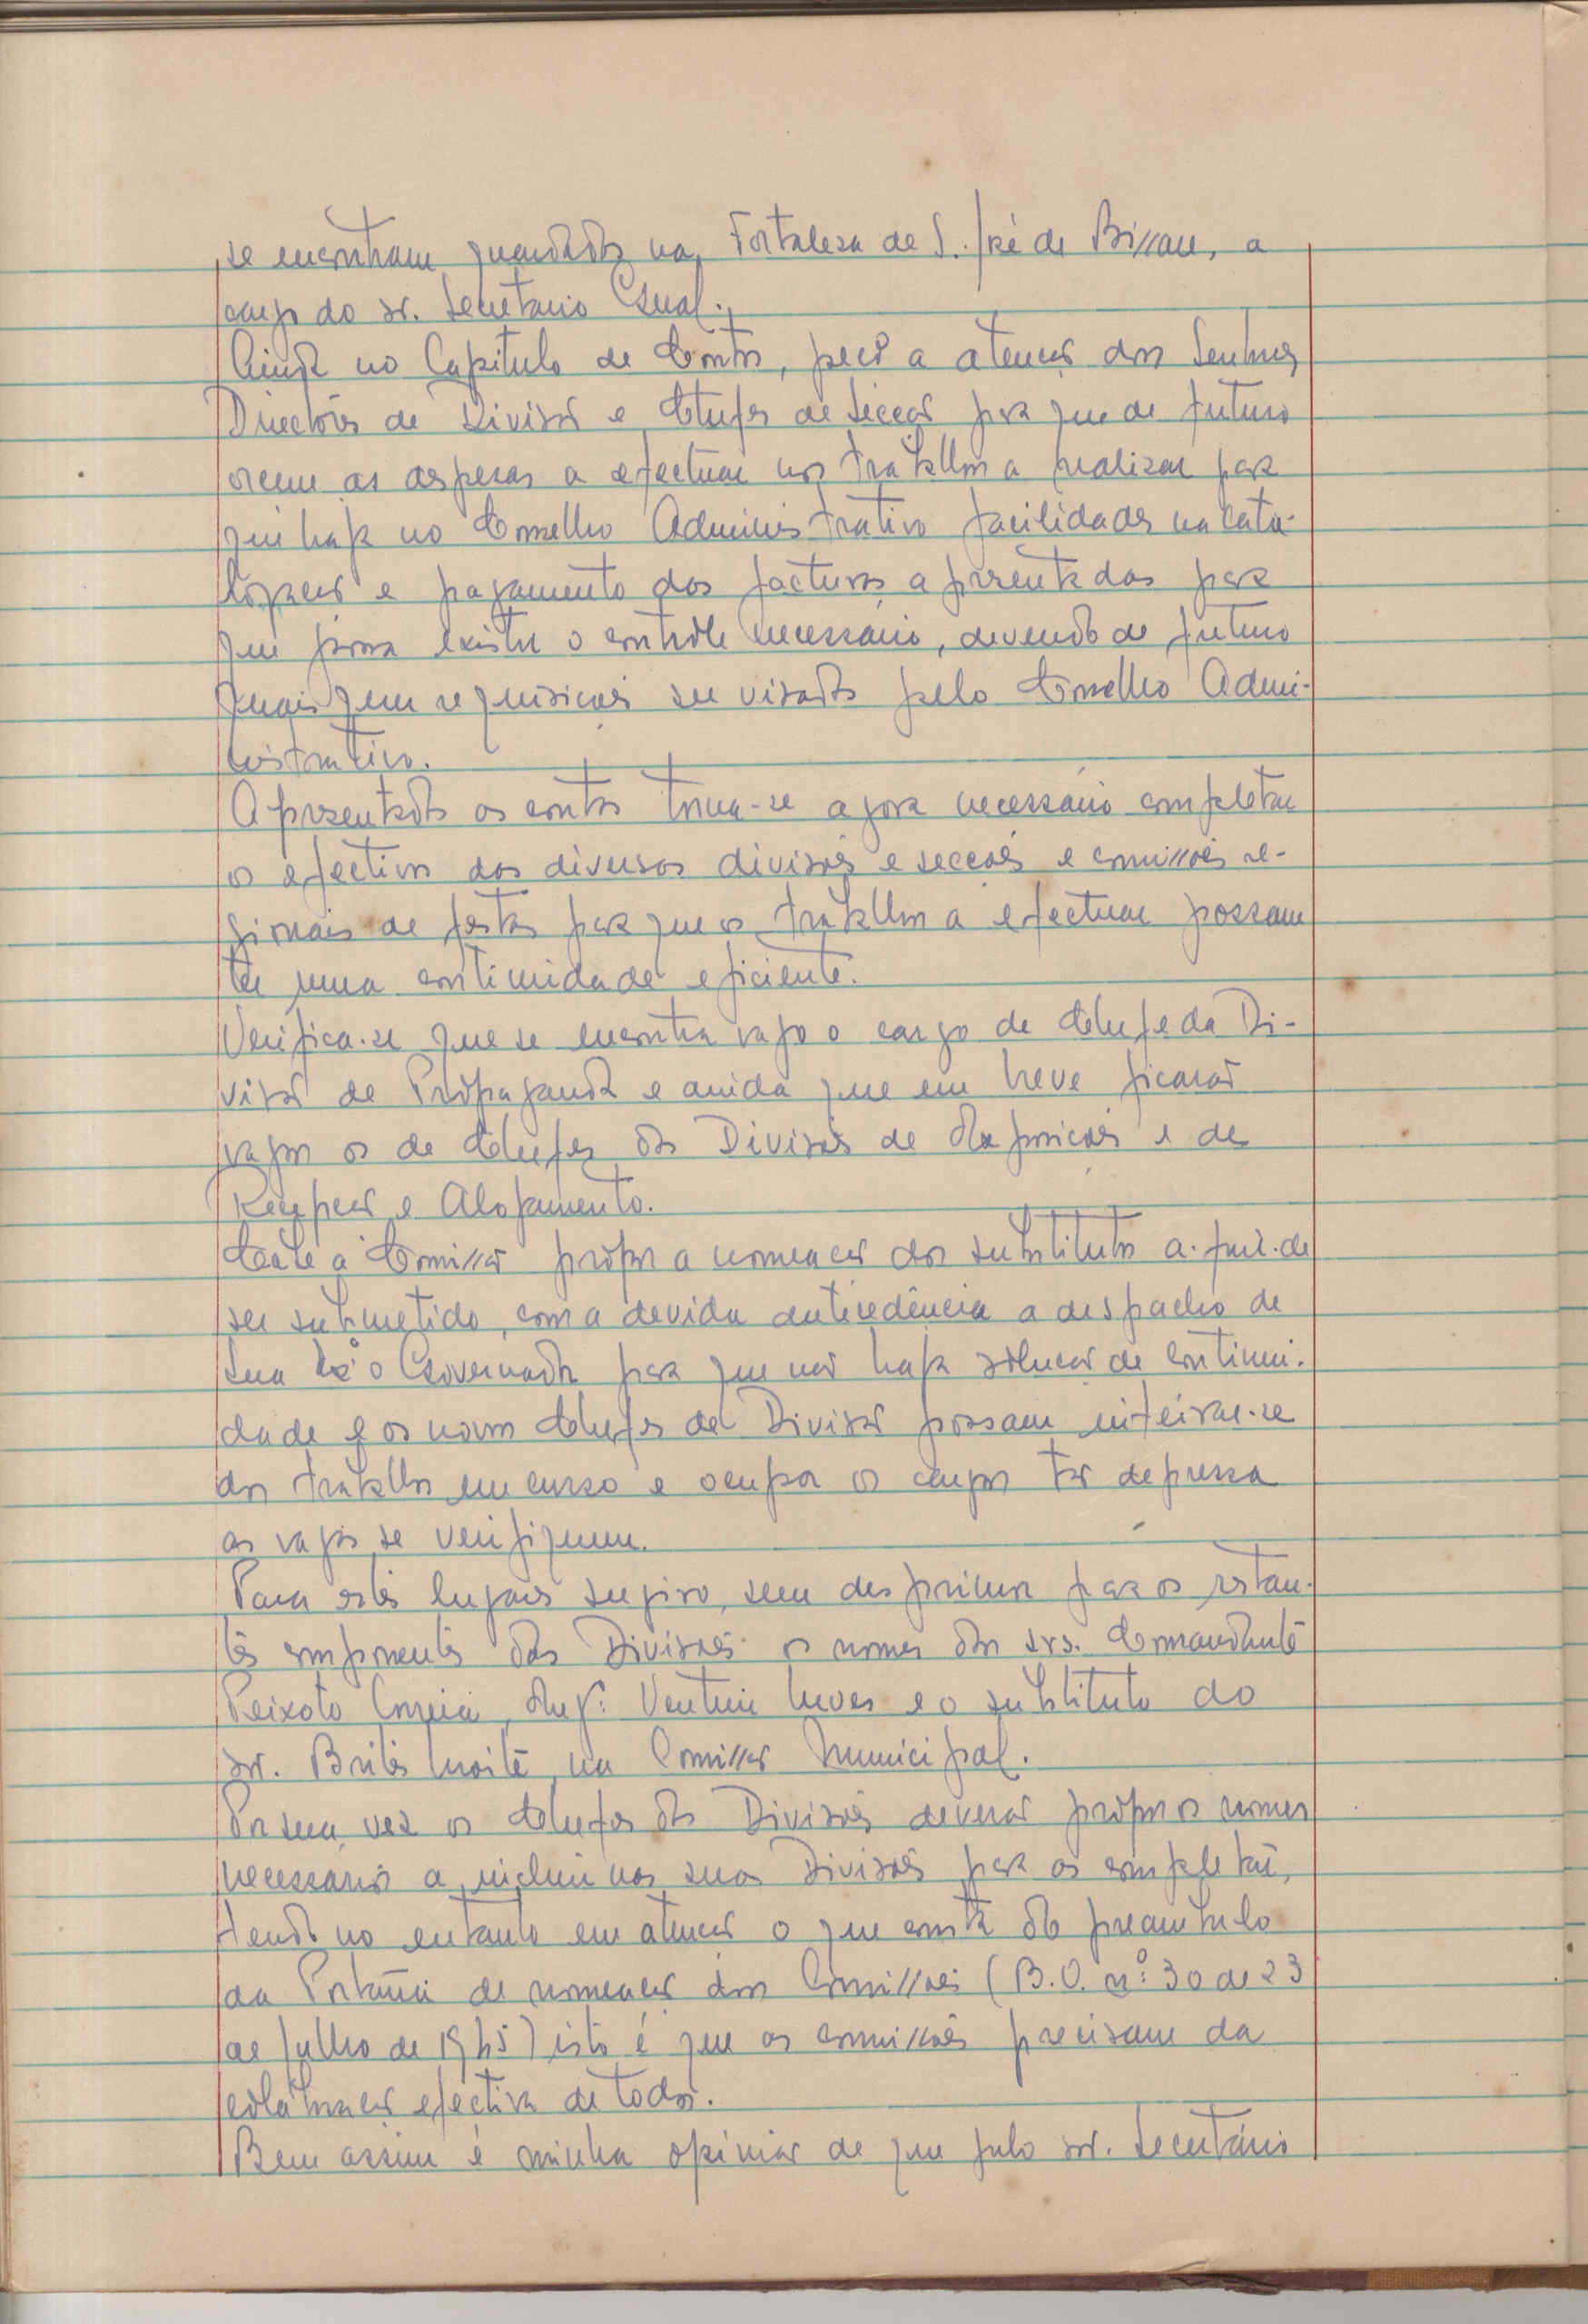 se encontram guardados na Fortaleza de S. José de Bissau, a
cargo do sr. Secretário Geral.
Ainda no Capitulo de Contas, peço a atenção dos Senhores
Directores de Divisão e Chefes de Secção para que de futuro
orcem as despesas a efectuar nos trabalhos a realizar para
que haja no Conselho Administrativo facilidades na cata-
logação e pagamento das facturas apresentadas para
que possa existir o contrôle necessário, devendo de futuro
quaisquer requisições ser visadas pelo Conselho Admi-
nistrativo.
Apresentadas as contas torna-se agora necessário completar
os efectivos das diversas divisões e secções e comissões re-
gionais de festas para que os trabalhos a efectuar possam
ter uma continuidade eficiente.
Verifica-se que se encontra vago o cargo de Chefe da Di-
visão de Propaganda e ainda que em breve ficarão
vagos os de Chefes das Divisões de Exposições e de
Recepção e Alojamento.
Cabe à Comissão propor a nomeação dos substitutos a fim de
ser submetido, com a devida antecedência a despacho de
Sua Exª o Governador para que não haja solução de continui-
dade e os novos Chefes de Divisão possam inteirar-se
dos trabalhos em curso e ocupar os cargos tão depressa
as vagas se verifiquem.
Para estes lugares sugiro, sem desprimor para os restan-
tes componentes das Divisões os nomes dos srs. Comandante
Peixoto Correia, Engº Ventura e o substituto do
sr. na Comissão Municipal.
Por sua vez os Chefes das Divisões deverão propor os nomes
necessários a incluir nas suas Divisões para as completar,
tendo no entanto em atenção o que consta do preambulo
da Portaria de nomeação das Comissões (B.O. nº 30 de 23
de Julho de 1945) isto é que as comissões precisam da
colaboração efectiva de todos.
Bem assim é minha opinião de que pelo sr. Secretário